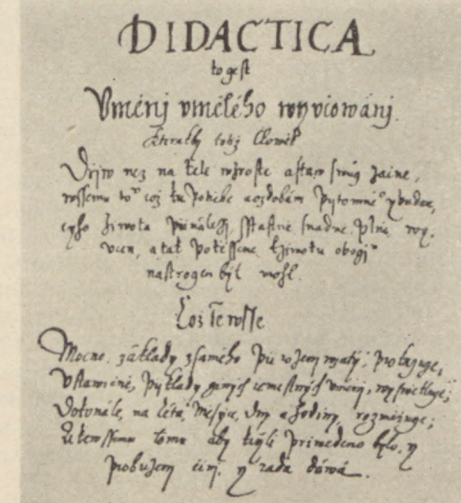 DIDACTICA
to gest
Vměnj vmělého wyvčowánj.
kterakby totiž Cžlowěk
Dřjw než na těle wzroste a staw swůg začne,
wssemu to° což ku potřebě a ozdobám přjtomné° y budau=
cyho žiwota přináležj, sstiastně, snadně, plně, wy=
včen, a tak potěssene k žiwotu obogjᵐ
nastrogen býti mohl.
Což se wsse
Mocně, základy z samého přirozenj wzatými, prokazuge,
Vstawičně, přjklady giných řemeslných vměnj, wyswětluge;
Dokonále, na léta, měsýce, dny a hodiny, rozměřuge;
Ke wssemu tomu aby k cýli přiwedeno bylo, y
probuzenj činj, y rada dáwá.